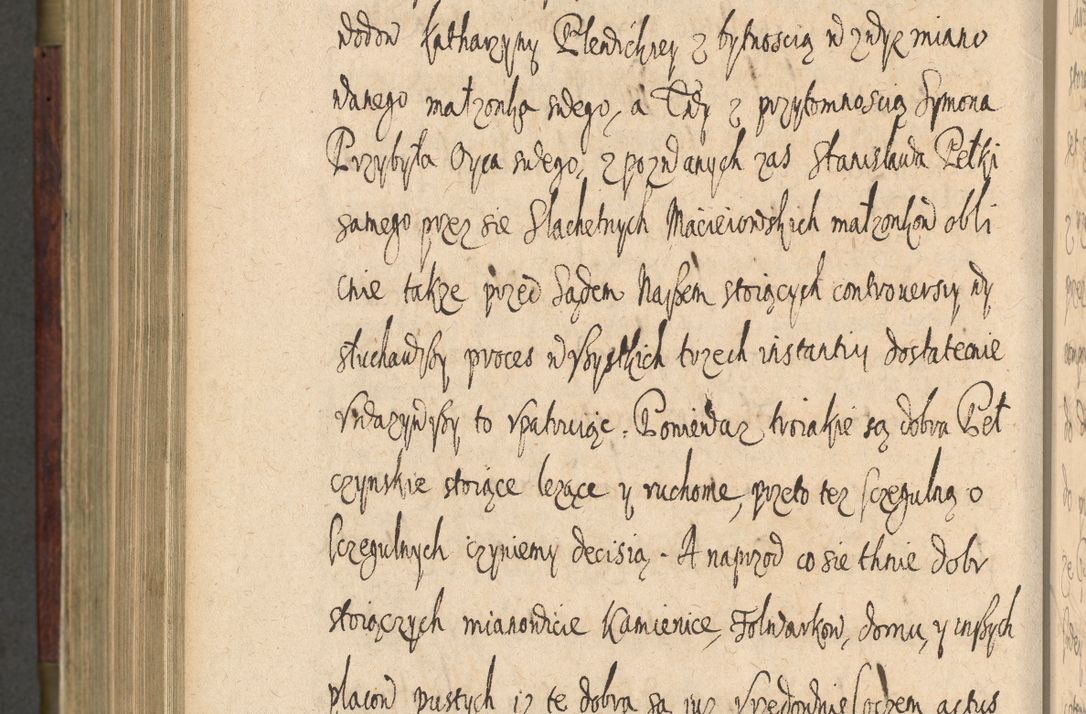 wdow Katharzyny Plewichney z bytnoscią wzwyz miano
wanego małzonka swego, a Ewy z przytomnoscią Symona
Przybyła Oyca swego, z pozwanych zas Stanisława Pełki
samego przez sie Slachetnych Macieiowskich małzonkow obli
cnie takze przed Sądem Naßem stoiących controuersiy wy
słuchawßy proces wßystkich trzech instantiy dostatecnie
vwazywßy to vpatruiąc. Poniewaz troiakie są dobra Peł
czynskie stoiące lezące y ruchome, przeto tez sczegulną o
sczegulnych czyniemy decisią. A naprzod co sie thnie dobr
stoiączych mianowicie Kamienice, Folwarkow, domu, y inßych
placow pustych iz te dobra są iuz actus